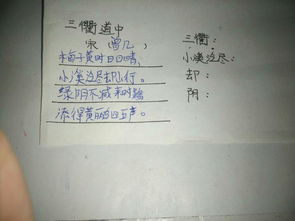 三衢道中
宋(曾几)
梅子黄时日日晴,
小溪泛尽却山行。
绿阴不减来时路
添得黄鹂四五声。
三衢:
小溪泛尽:
却:
阴: